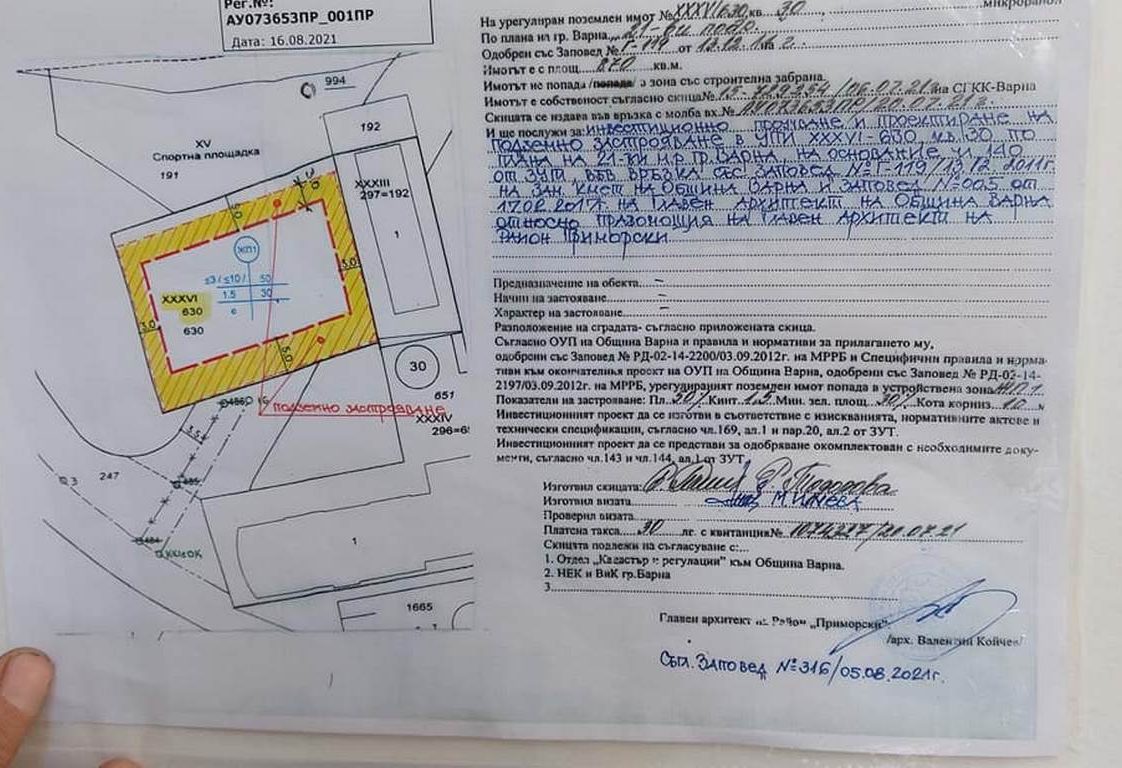 Рег.№:
АУ073653ПР_001ПР
Дата: 16.08.2021
994
192
XV
Спортна площадка
191
XXXIII
297=192
1
5.0
ЖП1
≤3/≤10/ 50
1.5 30
с
3.0
XXXVI
630
630
3.0
5.0
30
651
подземно застрояване
XXXIV
3.5
247
3
1
1665
1
На урегулиран поземлен имот № XXXVI 630, кв. 30 микрорайон
По плана на гр. Варна, 21-ви подр.
Одобрен със Заповед № Г-119 от 13.12.11 г.
Имотът е с площ 870 кв.м.
Имотът не попада /попада/ в зона със строителна забрана.
Имотът е собственост съгласно скица № 15-729354/06.07.21г. на СГКК-Варна
Скицата се издава във връзка с молба вх.№ АУ073653ПР/20.07.21г.
И ще послужи за: инвестиционно проучване и проектиране на
подземно застрояване в УПИ XXXVI-630, кв. 30 по
плана на 21-ви м.р. гр. Варна, на основание чл. 140
от ЗУТ, във връзка със Заповед № Г-119/13.12.2011г.
на Зам. Кмет на Община Варна и Заповед № 005 от
17.02.2017г. на Главен Архитект на Община Варна
относно правомощия на Главен Архитект на
район Приморски
Предназначение на обекта –
Начин на застояване –
Характер на застояване –
Разположение на сградата- съгласно приложената скица.
Съгласно ОУП на Община Варна и правила и нормативи за прилагането му,
одобрени със Заповед № РД-02-14-2200/03.09.2012г. на МРРБ и Специфични правила и норма-
тиви към окончателния проект на ОУП на Община Варна, одобрени със Заповед № РД-02-14-
2197/03.09.2012г. на МРРБ, урегулираният поземлен имот попада в устройствена зона ЖП1
Показатели на застрояване: Пл. 50% Кинт. 1.5 Мин. зел. площ 30% Кота корниз 10 м
Инвестиционният проект да се изготви в съответствие с изискванията, нормативните актове и
технически спецификации, съгласно чл.169, ал.1 и пар.20, ал.2 от ЗУТ.
Инвестиционният проект да се представи за одобряване окомплектован с необходимите доку-
менти, съгласно чл.143 и чл.144, ал.1 от ЗУТ
Изготвил скицата: Р. Тодорова
Изготвил визата М. Инева
Проверил визата
Платена такса 30 лв. с квитанция№ 1074327/20.07.21
Скицата подлежи на съгласуване с:...
1. Отдел „Кадастър и регулации" към Община Варна.
2. НЕК и ВиК гр.Варна
3.
Главен архитект на Район „Приморски"
/арх. Валентин Койчев/
Съгл. Заповед №316/05.08.2021г.